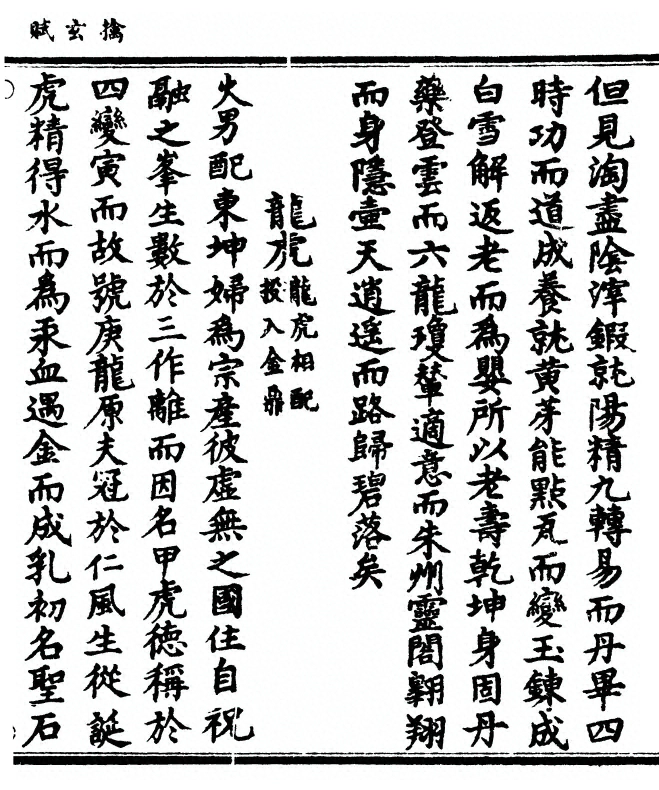 擒玄賦
但見淘盡陰滓鍜就陽精九轉易而丹畢四
時功而道成養就黄芽能點瓦而變玉鍊成
白雪解返老而為嬰所以老壽乾坤身固丹
藥登雲而六龍瓊輦適意而朱州靈閣翱翔
而身隱壺天逍遥而路歸碧落矣
龍虎龍虎相配投入金鼎
火男配東坤婦為宗産彼虛無之國住自祝
融之峯生數於三作離而因名甲虎徳稱於
四變寅而故號庚龍原夫冠於仁風生從誕
虎精得水而為汞血遇金而成乳初名聖石